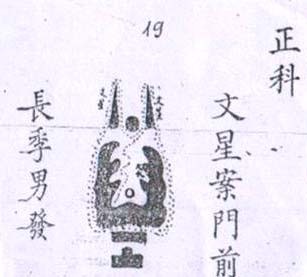 19
正科
文星案門前
長季男發
文星
文星